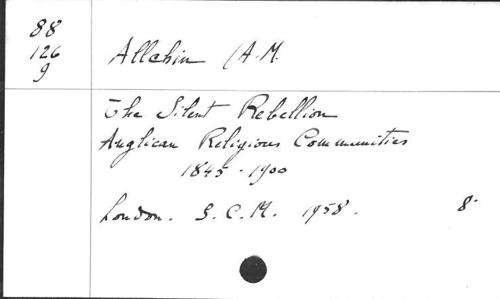 88
126
9
Allchin (A.M.
The Silent Rebellion
Anglican Religious Communities
1845-1900
London. S.C.M. 1958. 8°